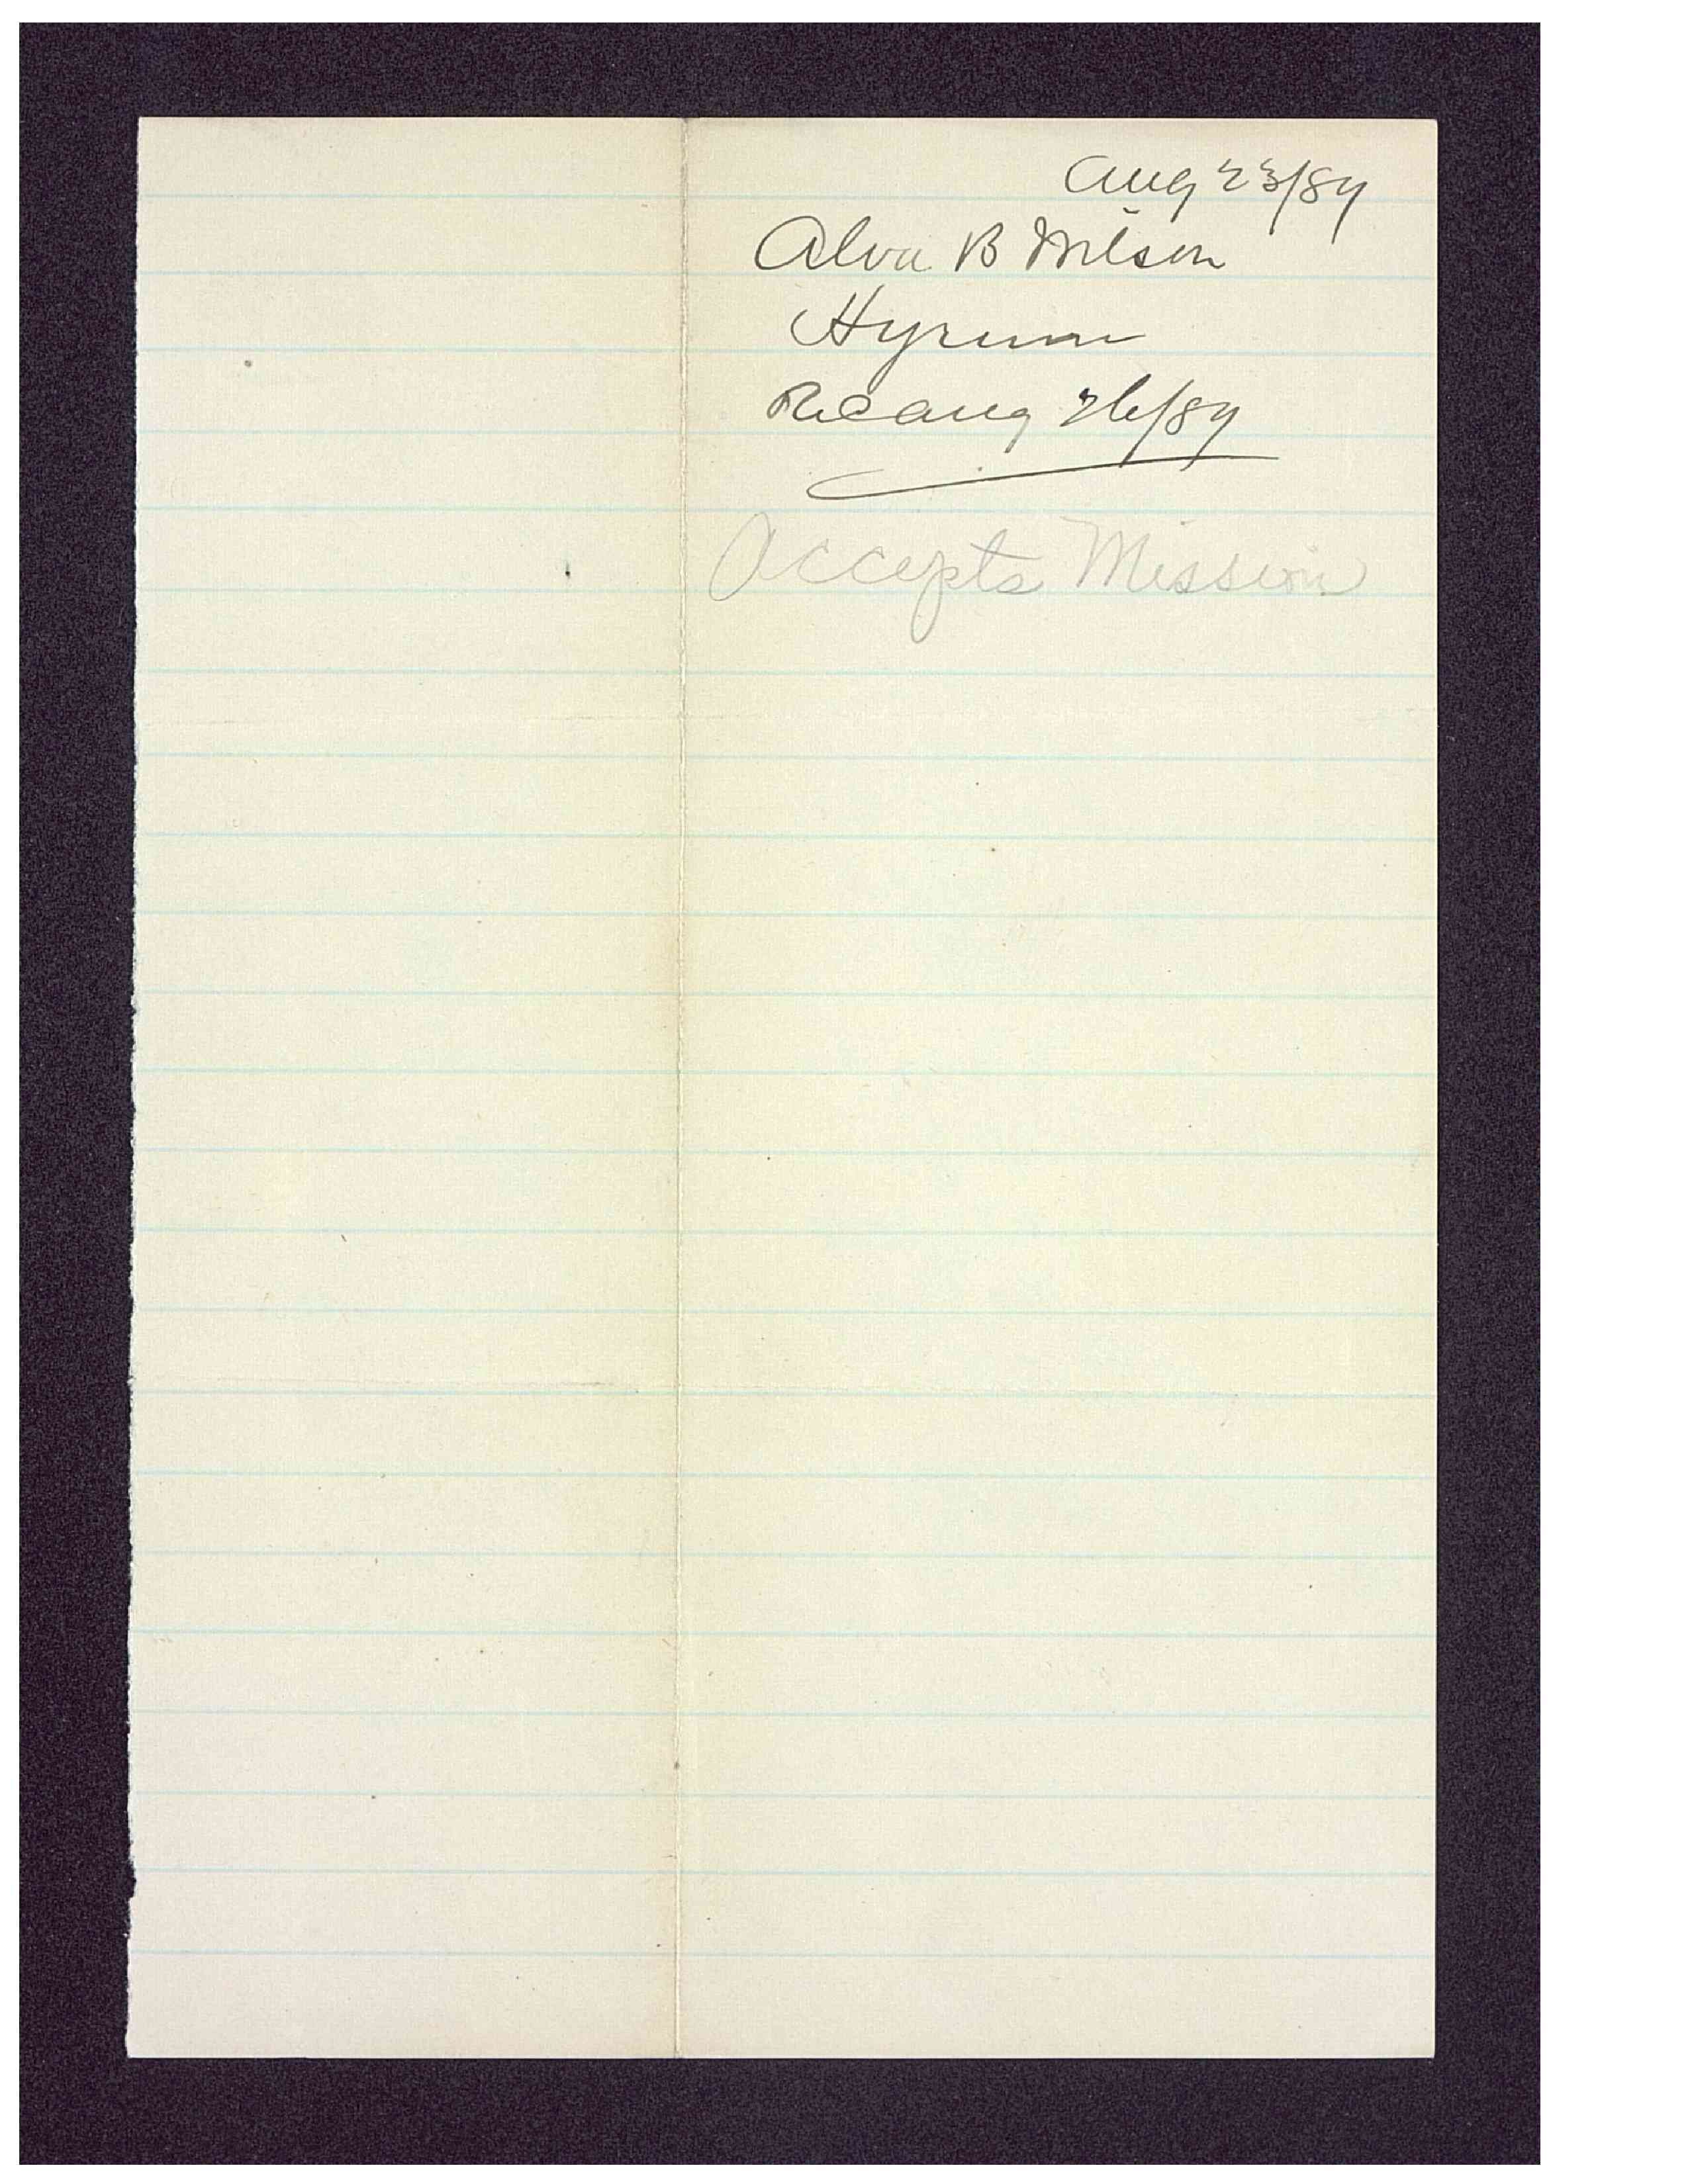 Aug 23/89
Alva B Wilson
Hyrum
Rec Aug 26/89
Accepts Mission